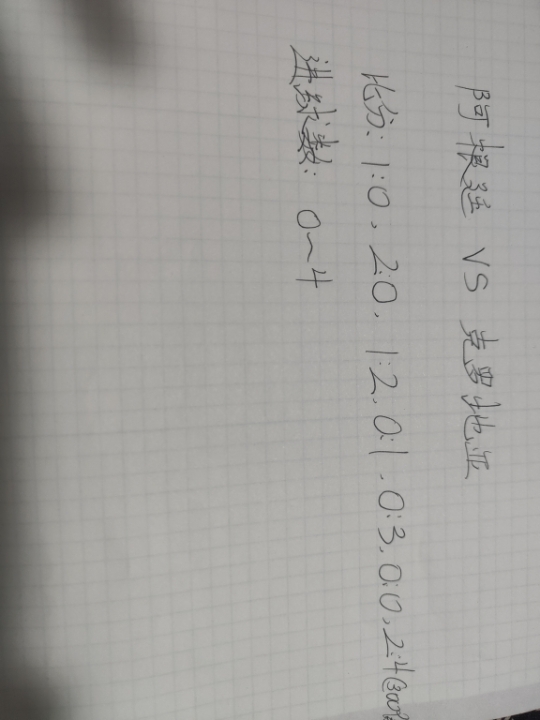 阿根廷 VS 克罗地亚
比分: 1:0, 2:0, 1:2, 0:1, 0:3, 0:0, 2:4(300
进球数: 0~4